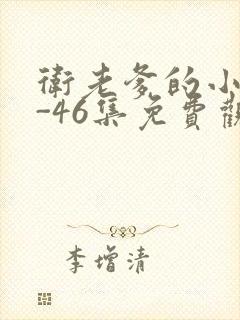 衛老爹的小
-46集免費觀
李增清